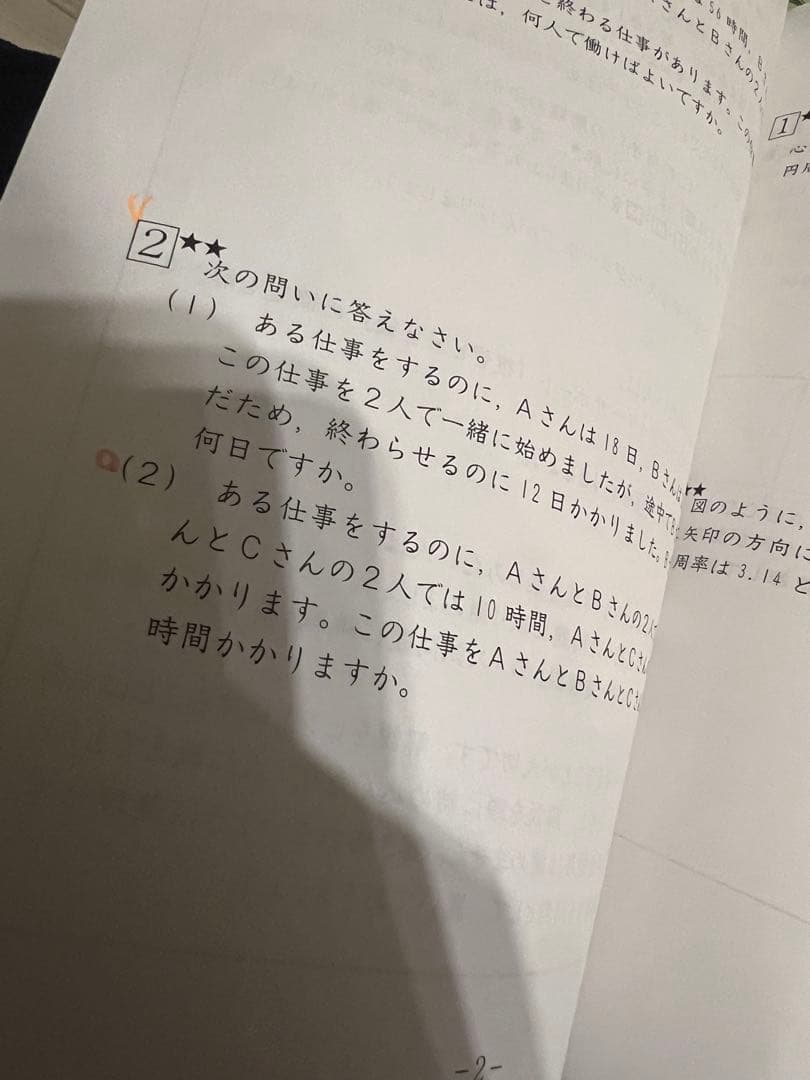 56時間,
と終わる仕事があります。この
さんとBさんの2
は,何人で働けばよいですか。
2★★ 次の問いに答えなさい。
(1) ある仕事をするのに,Aさんは18日,Bさんは
この仕事を2人で一緒に始めましたが,途中で
だため,終わらせるのに12日かかりました。
何日ですか。
(2) ある仕事をするのに,AさんとBさんの2人
んとCさんの2人では10時間,AさんとCさん
かかります。この仕事をAさんとBさんとCさ
時間かかりますか。
-2-
1★
心
円周
★ 図のように,
矢印の方向に
周率は3.14と